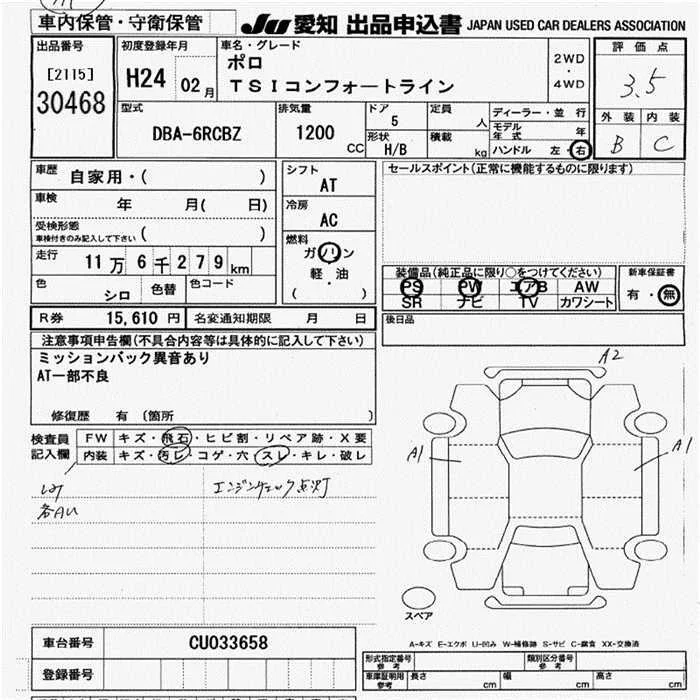 車内保管・守衛保管
JU 愛知 出品申込書 JAPAN USED CAR DEALERS ASSOCIATION
出品番号
[2115]
30468
初度登録年月
H24 02月
車名・グレード
ポロ
TSIコンフォートライン
2WD
・
4WD
評価点
3.5
外装 内装
B C
型式
DBA-6RCBZ
排気量
1200 CC
ドア
5
形状
H/B
定員
人
積載
kg
ディーラー・並行
モデル年式 年
ハンドル 左・右
車歴 自家用・( )
車検 年 月( 日)
受検形態
車検付きのみ記入して下さい ( )
走行 11万6千279km
色 シロ 色替 色コード
シフト
AT
冷房
AC
燃料
ガソリン
軽・油
( )
セールスポイント(正常に機能するものに限ります)
装備品(純正品に限り○をつけてください)
PS PW エアB AW
SR ナビ TV カワシート
新車保証書
有・無
R券 15,610円 名変通知期限 月 日
後日品
注意事項申告欄(不具合内容等は具体的に記入して下さい)
ミッションバック異音あり
AT一部不良
修復歴 有 (箇所 )
検査員記入欄
FW キズ・飛石・ヒビ割・リペア跡・X要
内装 キズ・汚レ・コゲ・穴・スレ・キレ・破レ
エンジンチェック点灯
各AU
A2
A1
A1
スペア
A-キズ E-エクボ U-凹み W-補修跡 S-サビ C-腐食 XX-交換済
車台番号 CU033658
登録番号
形式指定番号 参考
類別区分番号 参考
車庫証明用 参考
長さ cm 幅 cm 高さ cm